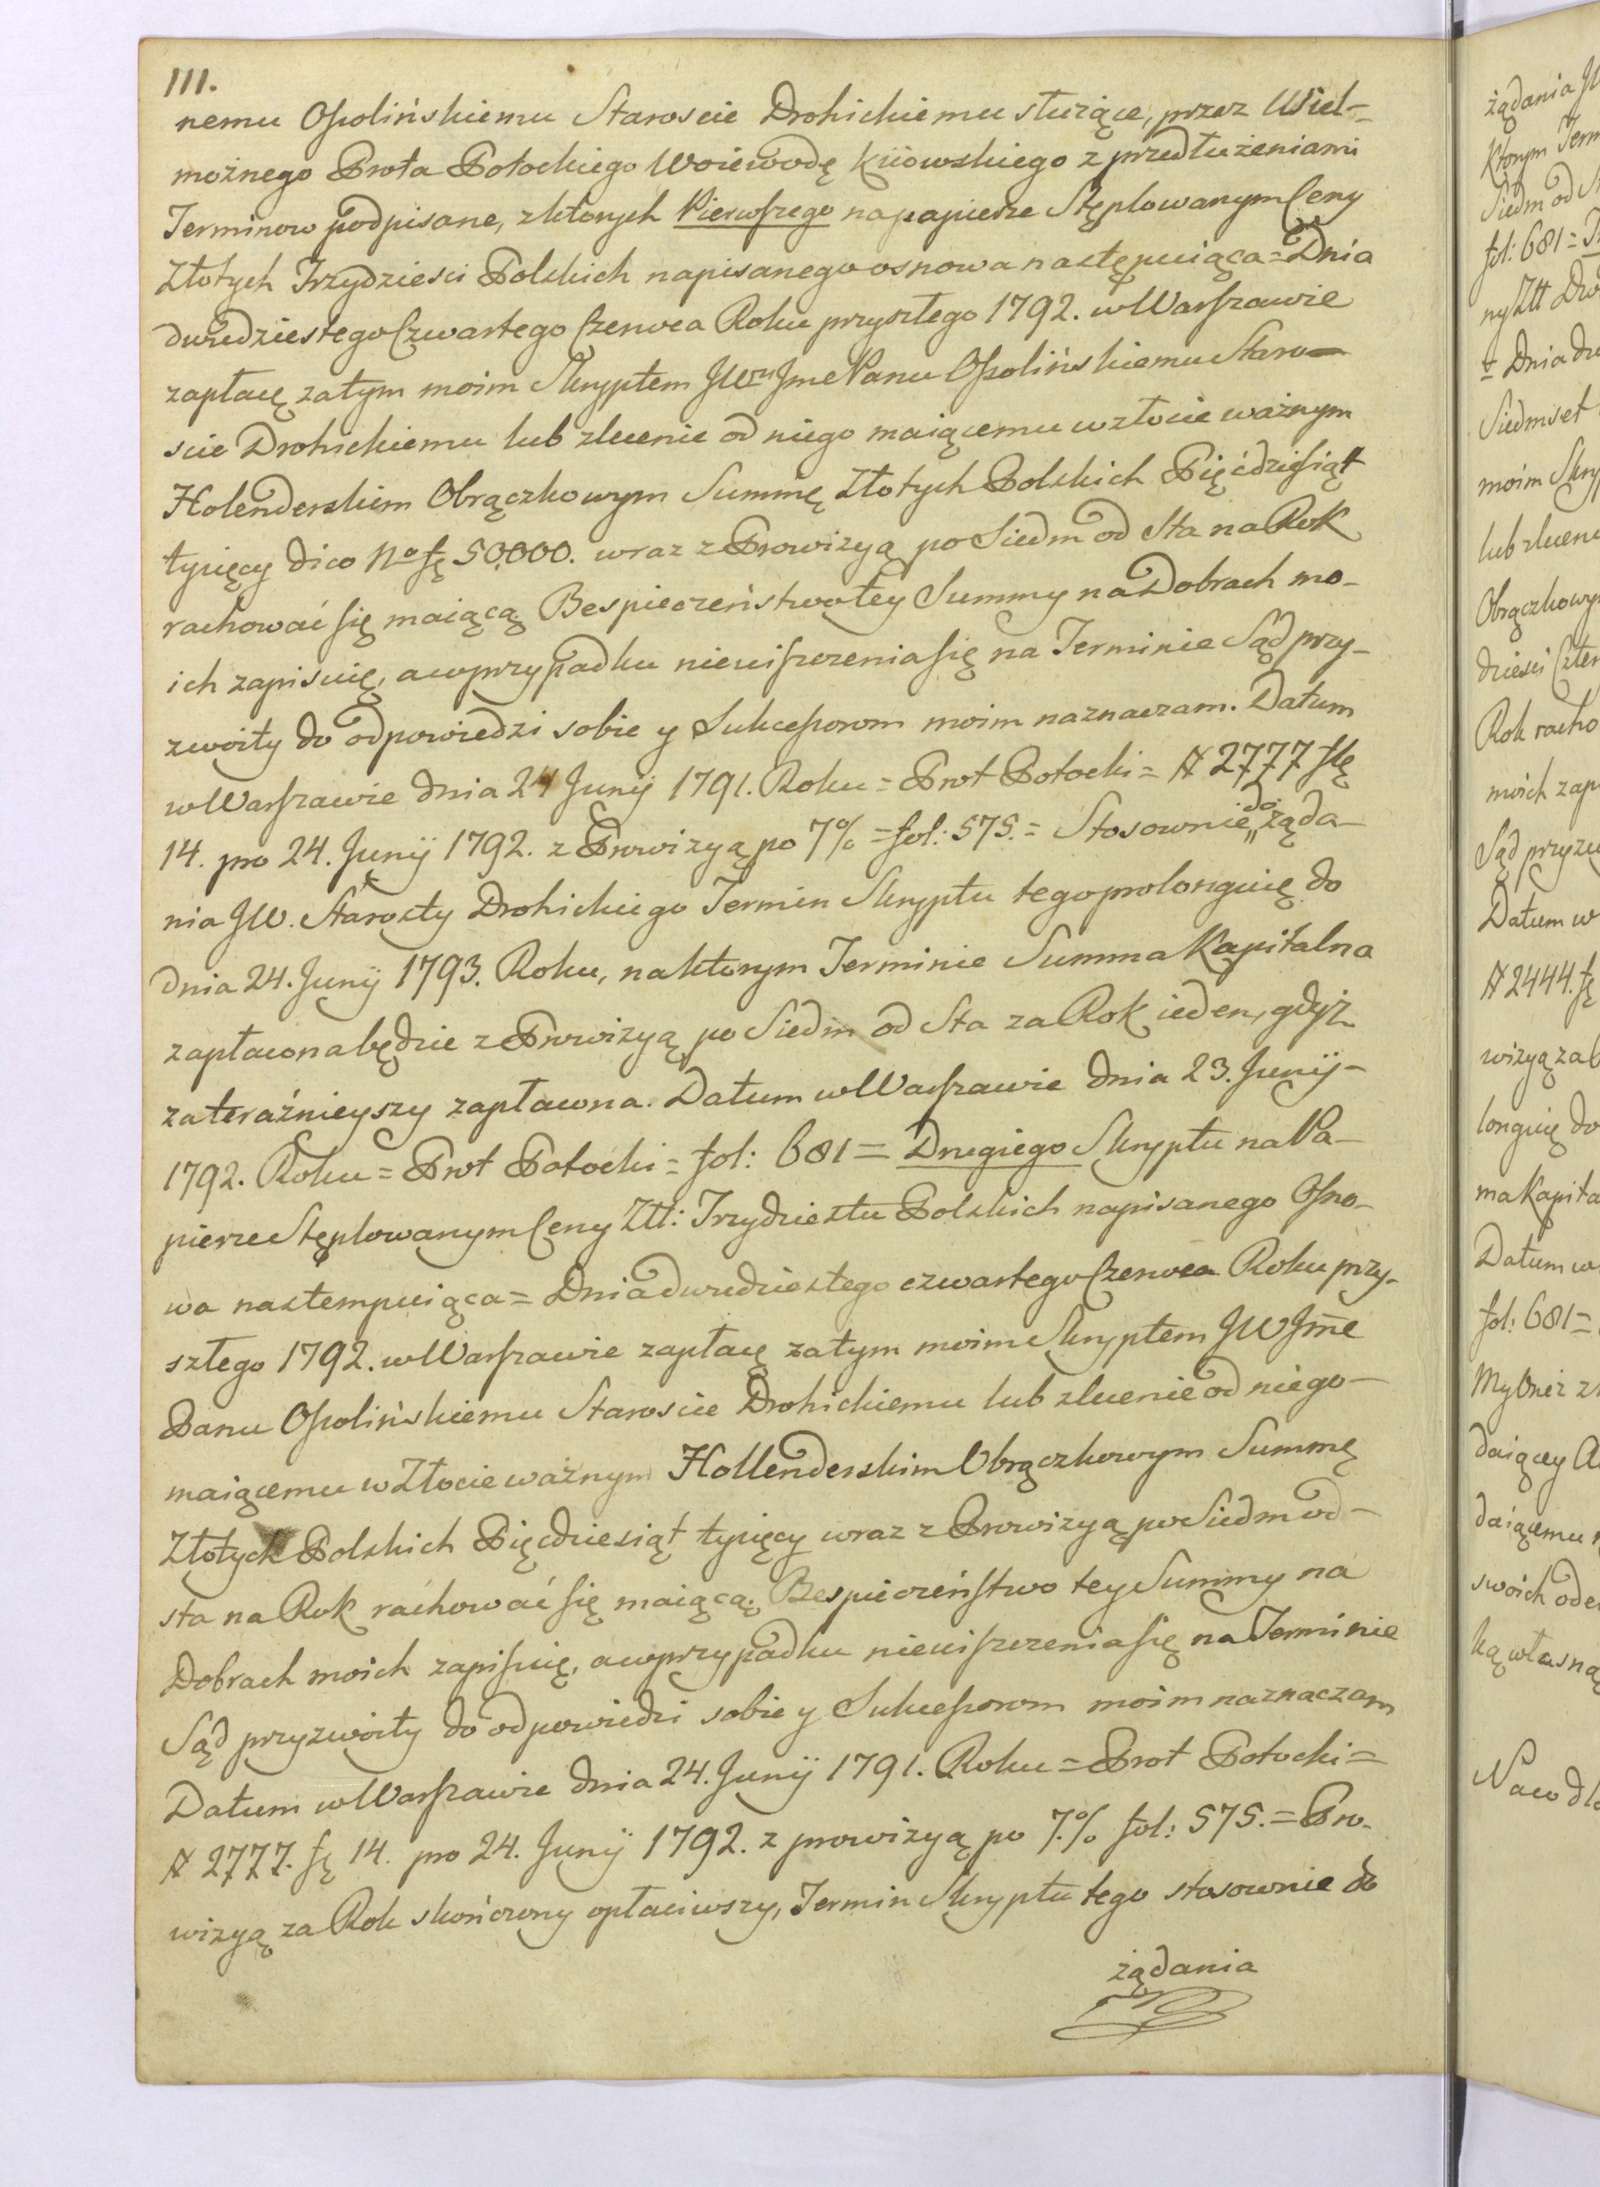 111.
nemu Ossolińskiemu Staroscie Drohickiemu służące, przez Wiel-
możnego Prota Potockiego Woiewodę kiiowskiego z przedłużeniami
Terminow podpisane, z ktorych Pierwszego na papierze Stęplowanym Ceny
Złotych Trzydziesci Polskich napisanego osnowa następuiąca = Dnia
dwudziestego Czwartego Czerwca Roku przyszłego 1792. w Warszawie
zapłacę za tym moim Skryptem JWmu Jme Panu Ossolińskiemu Staro-
scie Drohickiemu lub zlecenie od niego maiącemu w złocie ważnym
Holenderskim Obrączkowym Summę Złotych Polskich Pięćdziesiąt
tysięcy dico No 50,000. wraz z Prowizyą po Siedm od Sta na Rok
rachować się maiącą Bespieczeństwo tey Summy na Dobrach mo-
ich zapisuię, a w przypadku nieuiszczenia się na Terminie Sąd przy-
zwoity do odpowiedzi sobie y Sukcessorom moim naznaczam. Datum
w Warszawie dnia 24 Junij 1791. Roku = Prot Potocki = N 2777
14. pro 24. Junij 1792. z Prowizyą po 7% = fol: 575. = Stosownie do żąda-
nia JW. Starosty Drohickiego Termin Skryptu tego prolonguię do
dnia 24. Junij 1793. Roku, na ktorym Terminie Summa Kapitalna
zapłacona będzie z Prowizyą po Siedm od Sta za Rok ieden, gdyż
za teraźnieyszy zapłacona. Datum w Warszawie dnia 23. Junij -
1792. Roku = Prot Potocki = fol: 681 = Drugiego Skryptu na Pa-
pierze Stęplowanym Ceny Złt: Trzydziestu Polskich napisanego Osno-
wa nastempuiąca = Dnia dwudziestego czwartego Czerwca Roku przy-
szłego 1792. w Warszawie zapłacę za tym moim Skryptem JW Jme
Panu Ossolińskiemu Staroscie Drohickiemu lub zlecenie od niego -
maiącemu w Złocie ważnym Hollenderskim Obrączkowym Summę
Złotych Polskich Pięcdziesiąt tysięcy wraz z Prowizyą po Siedm od -
sta na Rok rachować się maiącą. Bespieczeństwo tey Summy na
Dobrach moich zapisuię, a w przypadku nieuiszczenia się na Terminie
Sąd przyzwoity do odpowiedzi sobie y Sukcessorom moim naznaczam
Datum w Warszawie dnia 24. Junij 1791. Roku = Prot Potocki =
N 2777. 14. pro 24. Junij 1792. z prowizyą po 7.% fol: 575. = Pro-
wizyą za Rok skończony opłaciwszy, Termin Skryptu tego stosownie do
żądania
żądania
ktorym Term
Siedm od
fol: 681 =
ny Złt
= Dnia
Siedmset
moim Skry
lub zlecen
Obrączkowy
dziesci Czter
Rok racho
moich zap
Sąd przyzw
Datum w
N 2444.
wizyą za
longuię do
ma Kapita
Datum w
fol: 681 =
My Oneż
daiącey
daiącemu
swoich ode
ką własną